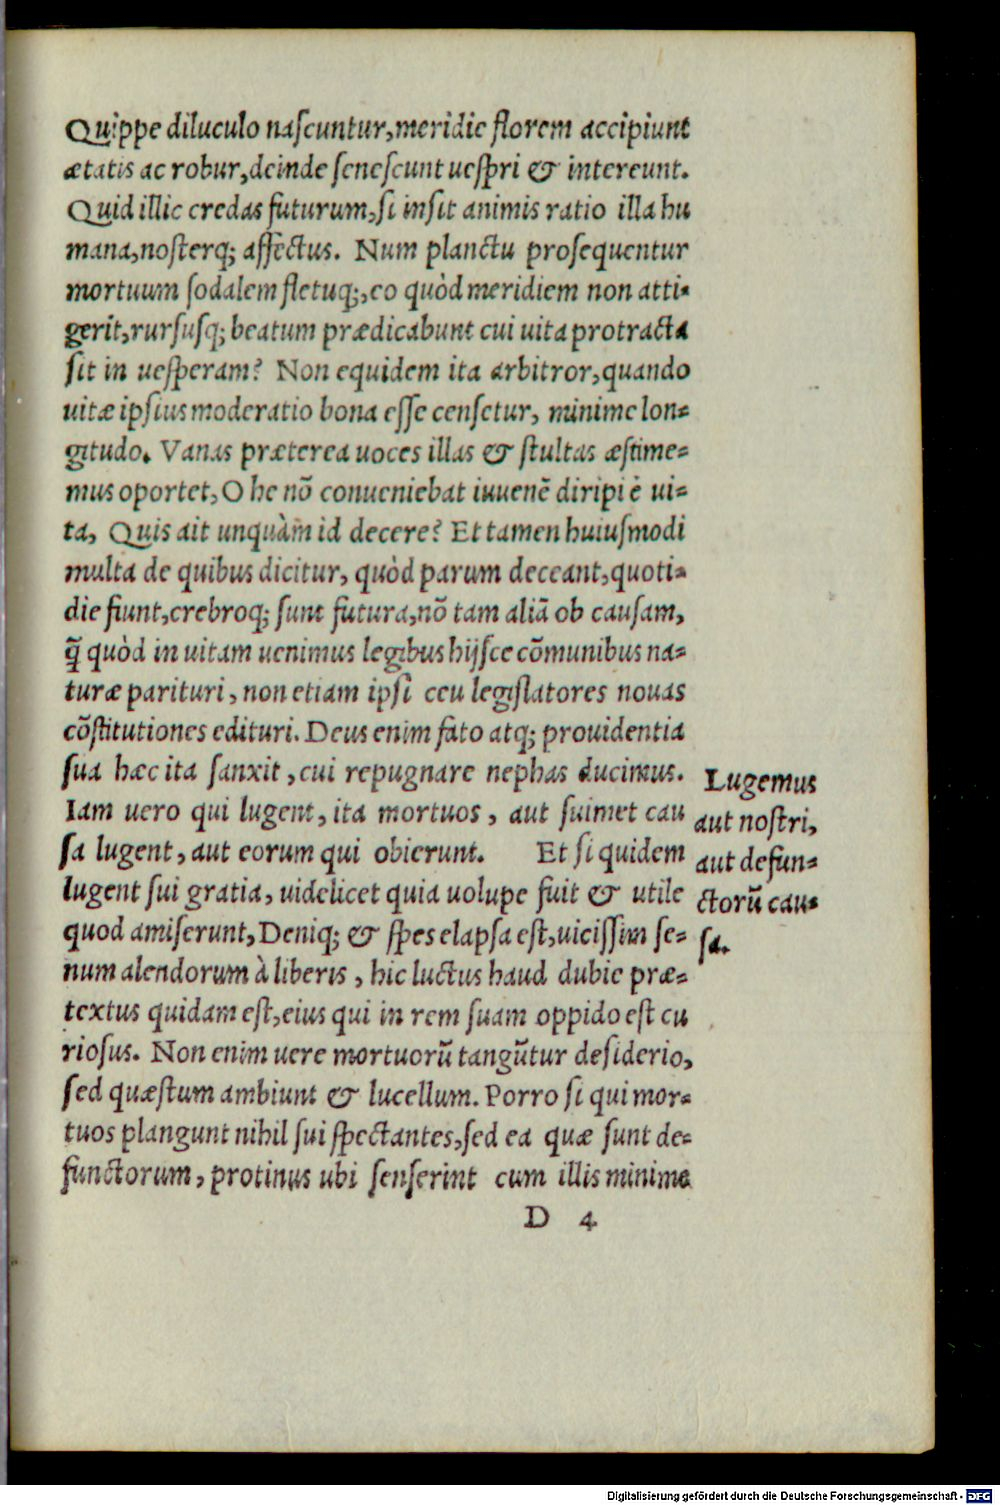 Quippe diluculo naſcuntur,meridie florem accipiunt
ætatis ac robur,deinde ſeneſcunt ueſpri & intereunt.
Quid illic credas futurum,ſi inſit animis ratio illa hu
mana,noſterq; affectus. Num planctu proſequentur
mortuum ſodalem fletuq;,eo quòd meridiem non atti-
gerit,rurſuſq; beatum prædicabunt cui uita protracta
ſit in ueſperam? Non equidem ita arbitror,quando
uitæ ipſius moderatio bona eſſe cenſetur, minime lon-
gitudo. Vanas præterea uoces illas & ſtultas æſtime-
mus oportet, O he nõ conueniebat iuuenẽ diripi è ui-
ta, Quis ait unquàm id decere? Et tamen huiuſmodi
multa de quibus dicitur, quòd parum deceant,quoti-
die fiunt,crebroq; ſunt futura,nõ tam aliã ob cauſam,
q̃ quòd in uitam uenimus legibus hijſce cõmunibus na-
turæ parituri, non etiam ipſi ceu legiſlatores nouas
cõſtitutiones edituri. Deus enim fato atq; prouidentia
ſua hæc ita ſanxit, cui repugnare nephas ducimus.
Iam uero qui lugent, ita mortuos, aut ſuimet cau
ſa lugent, aut eorum qui obierunt. Et ſi quidem
lugent ſui gratia, uidelicet quia uolupe fuit & utile
quod amiſerunt, Deniq; & ſpes elapſa eſt,uiciſſim ſe-
num alendorum à liberis, hic luctus haud dubie præ-
textus quidam eſt,eius qui in rem ſuam oppido eſt cu
rioſus. Non enim uere mortuorũ tangũtur deſiderio,
ſed quæſtum ambiunt & lucellum. Porro ſi qui mor-
tuos plangunt nihil ſui ſpectantes,ſed ea quæ ſunt de-
functorum, protinus ubi ſenſerint cum illis minime
D 4
Lugemus
aut noſtri,
aut defun-
ctorũ cau-
ſa.
Digitalisierung gefördert durch die Deutsche Forschungsgemeinschaft - DFG